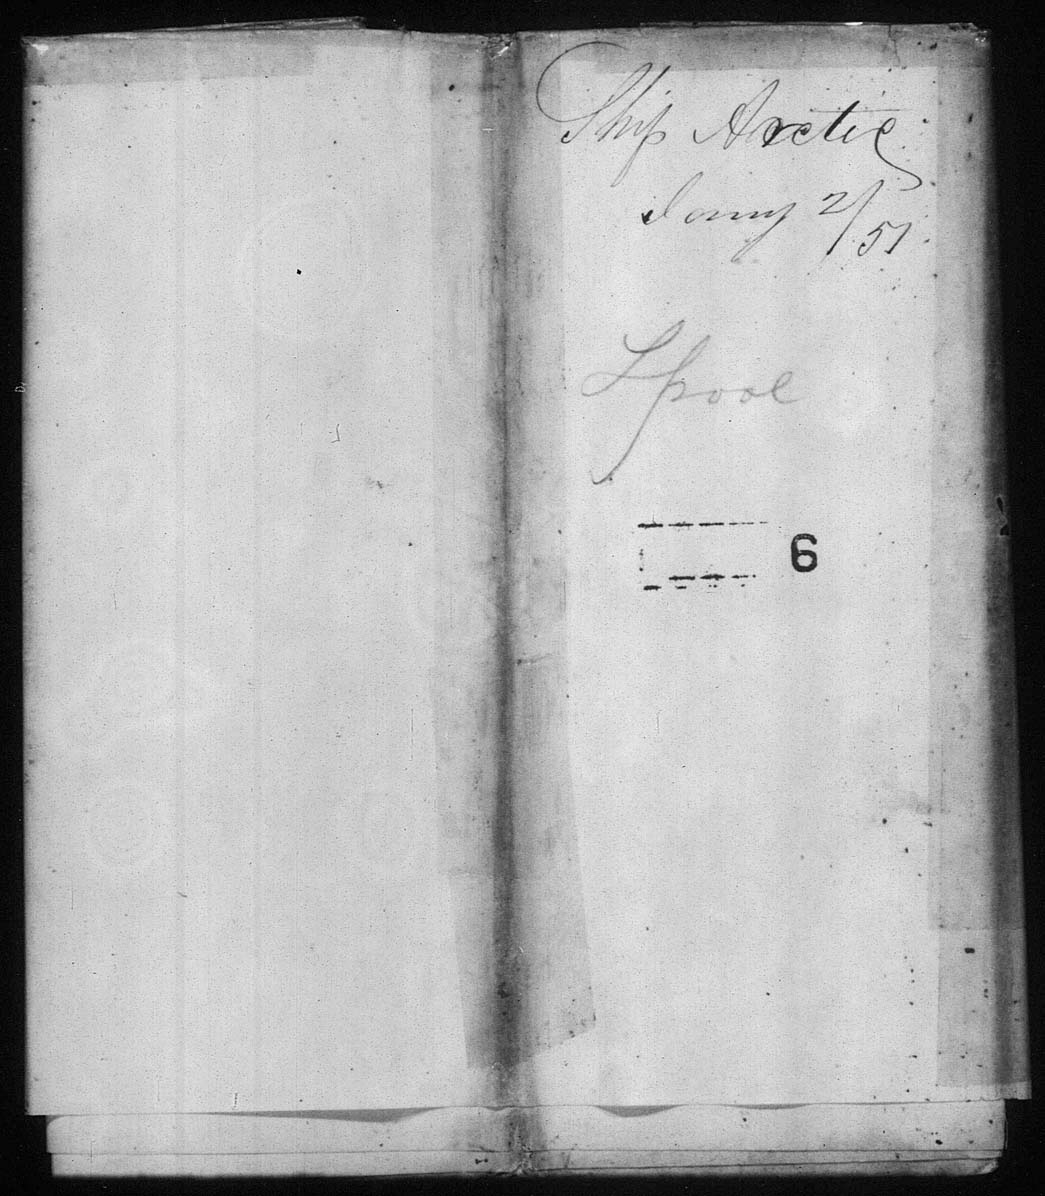 Ship Arctic
Jany 2/51
Lpool
6